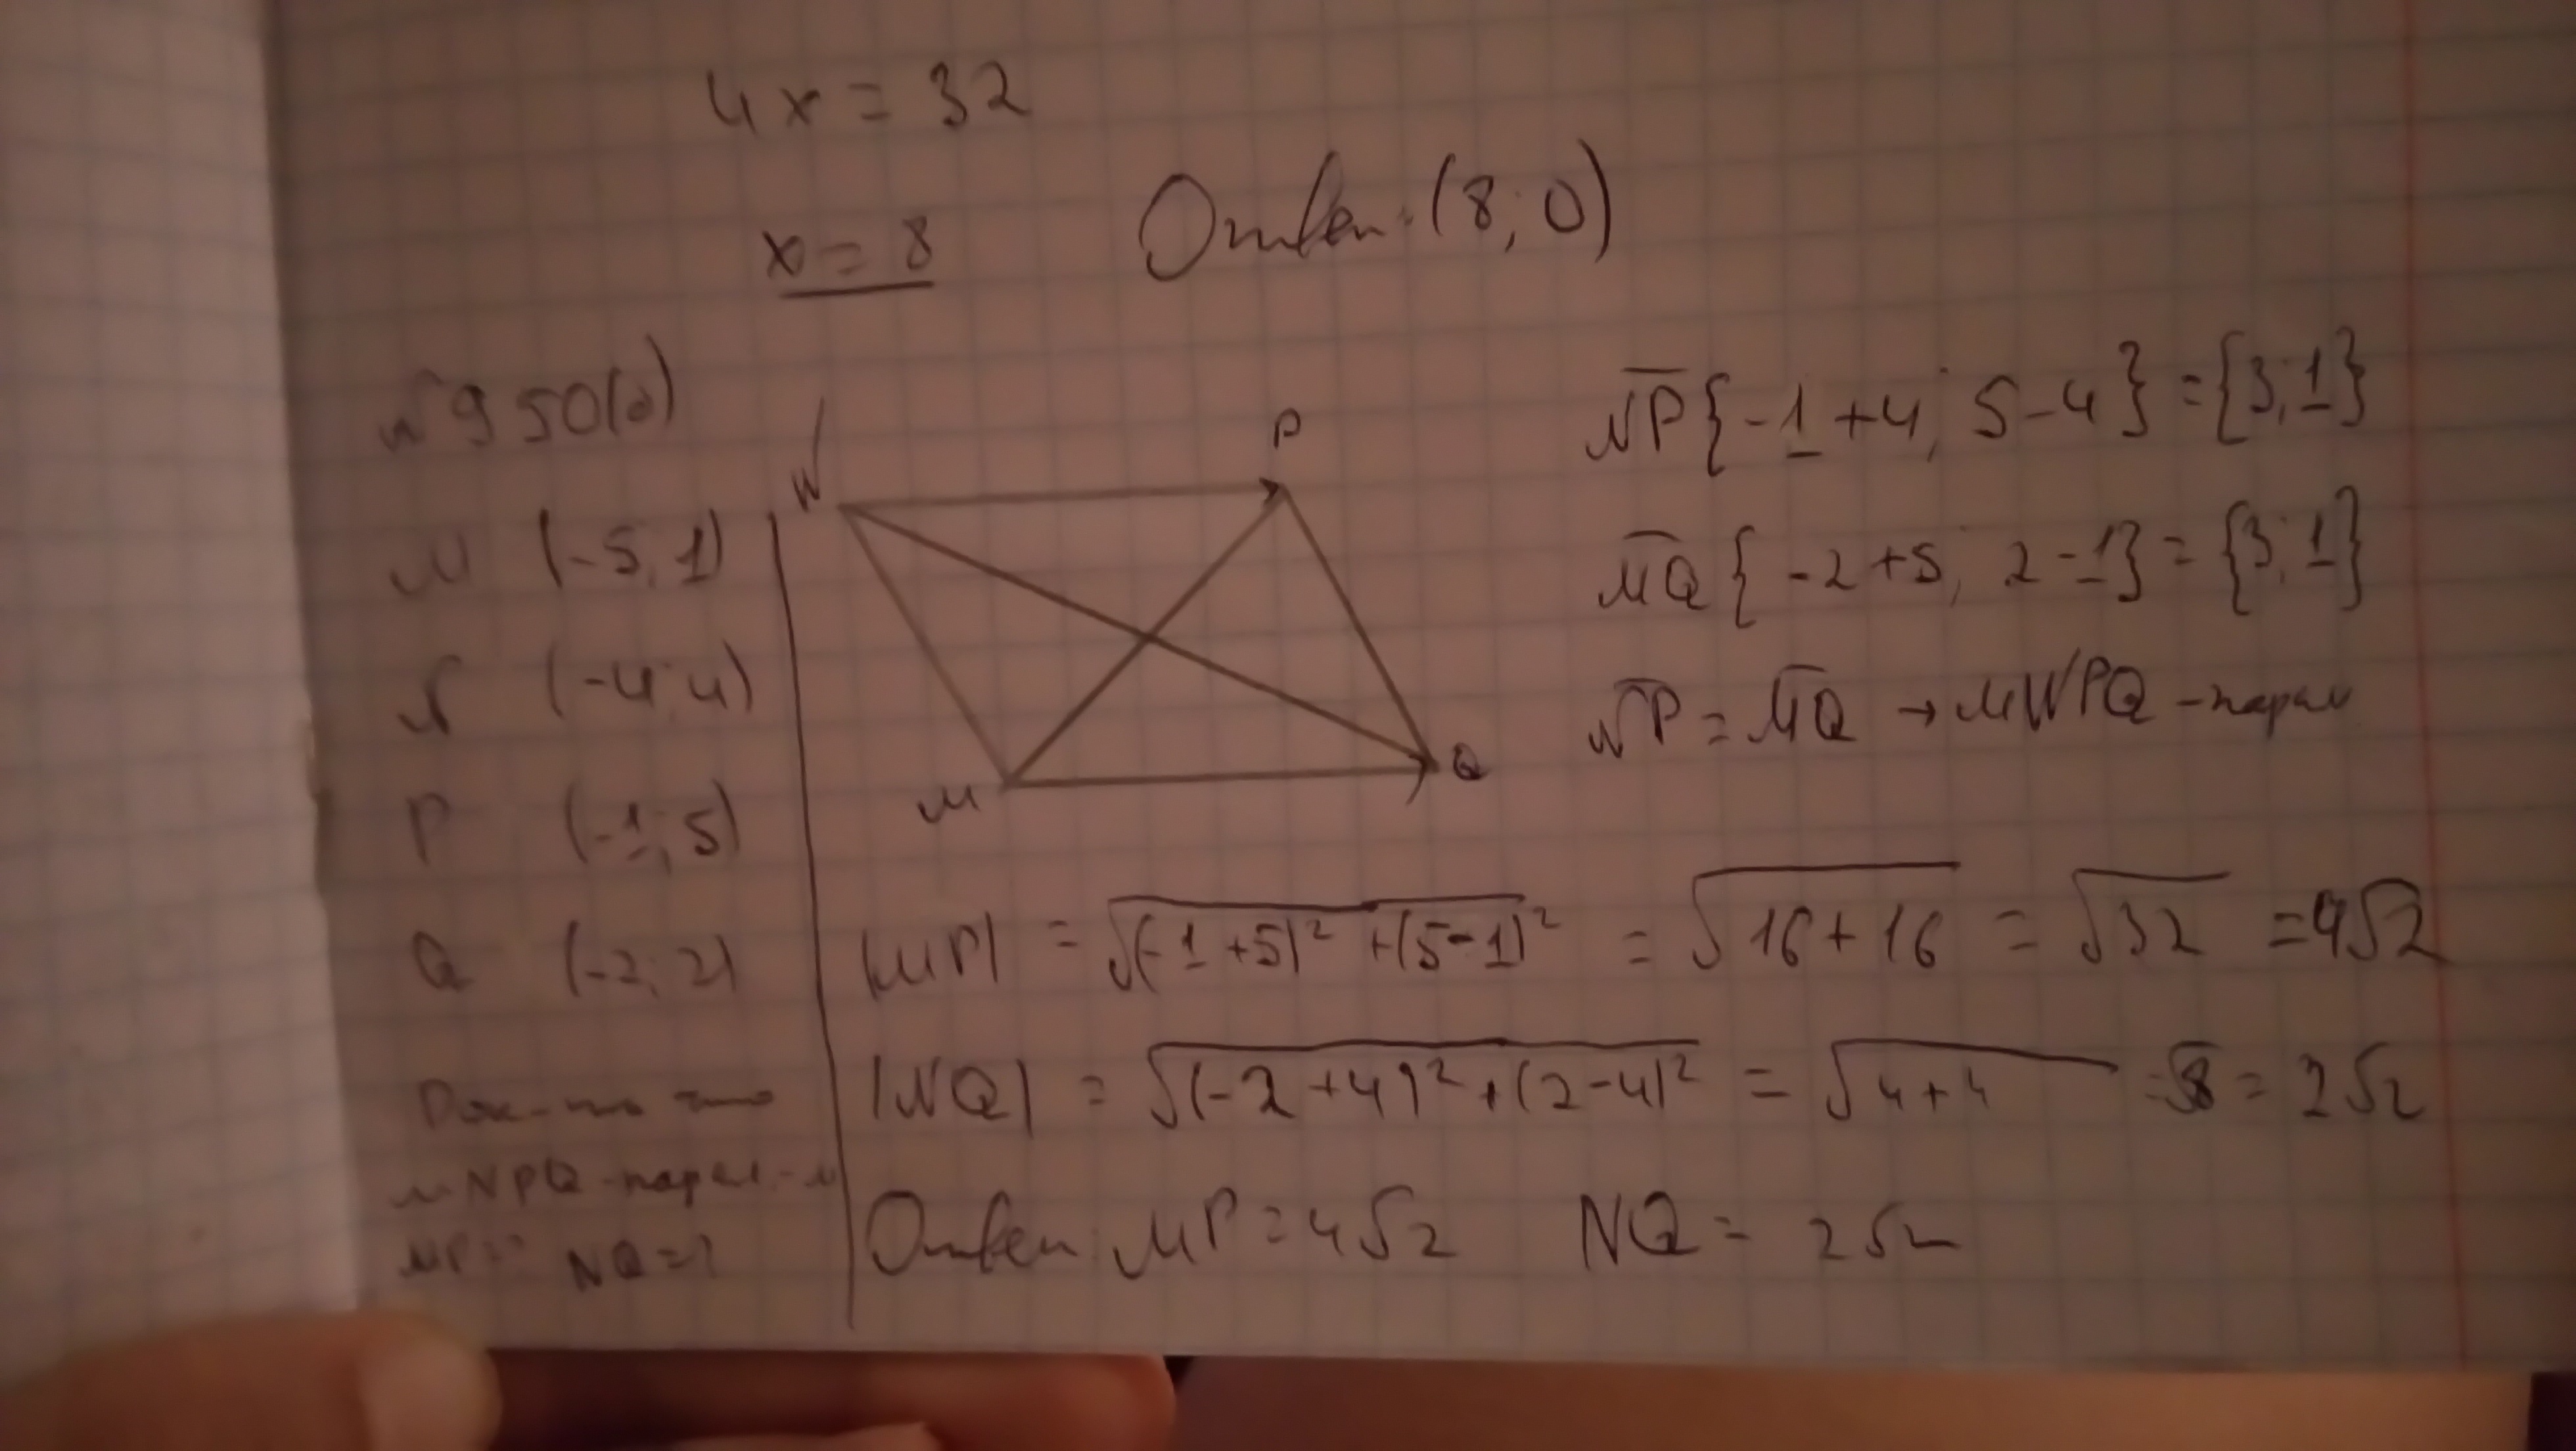 4x = 32
x = 8 Ответ: (8; 0)
N950(а)
M (-5; 1)
N (-4; 4)
P (-1; 5)
Q (-2; 2)
Док-ть что
MNPQ-парал-м
MP=? NQ=?
N P
M Q
NP{-1+4; 5-4} = {3; 1}
MQ{-2+5; 2-1} = {3; 1}
NP = MQ → MNPQ - парал
|MP| = √(-1+5)² + (5-1)² = √16+16 = √32 = 4√2
|NQ| = √(-2+4)² + (2-4)² = √4+4 = √8 = 2√2
Ответ: MP = 4√2 NQ = 2√2